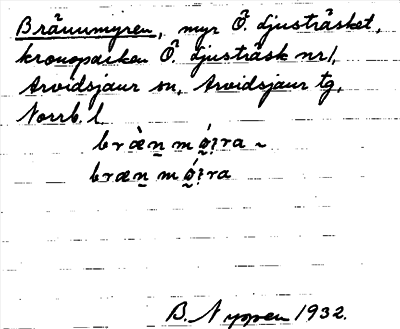 Brännmyren, myr Ö. Ljusträsket,
kronoparken Ö. Ljusträsk nr 1,
Arvidsjaur sn, Arvidsjaur tg,
Norrb. l.
bræ̀n̲ mǿ̲ɪra ~
bræn̲ mǿ̲ɪra
B. Nyppen 1932.